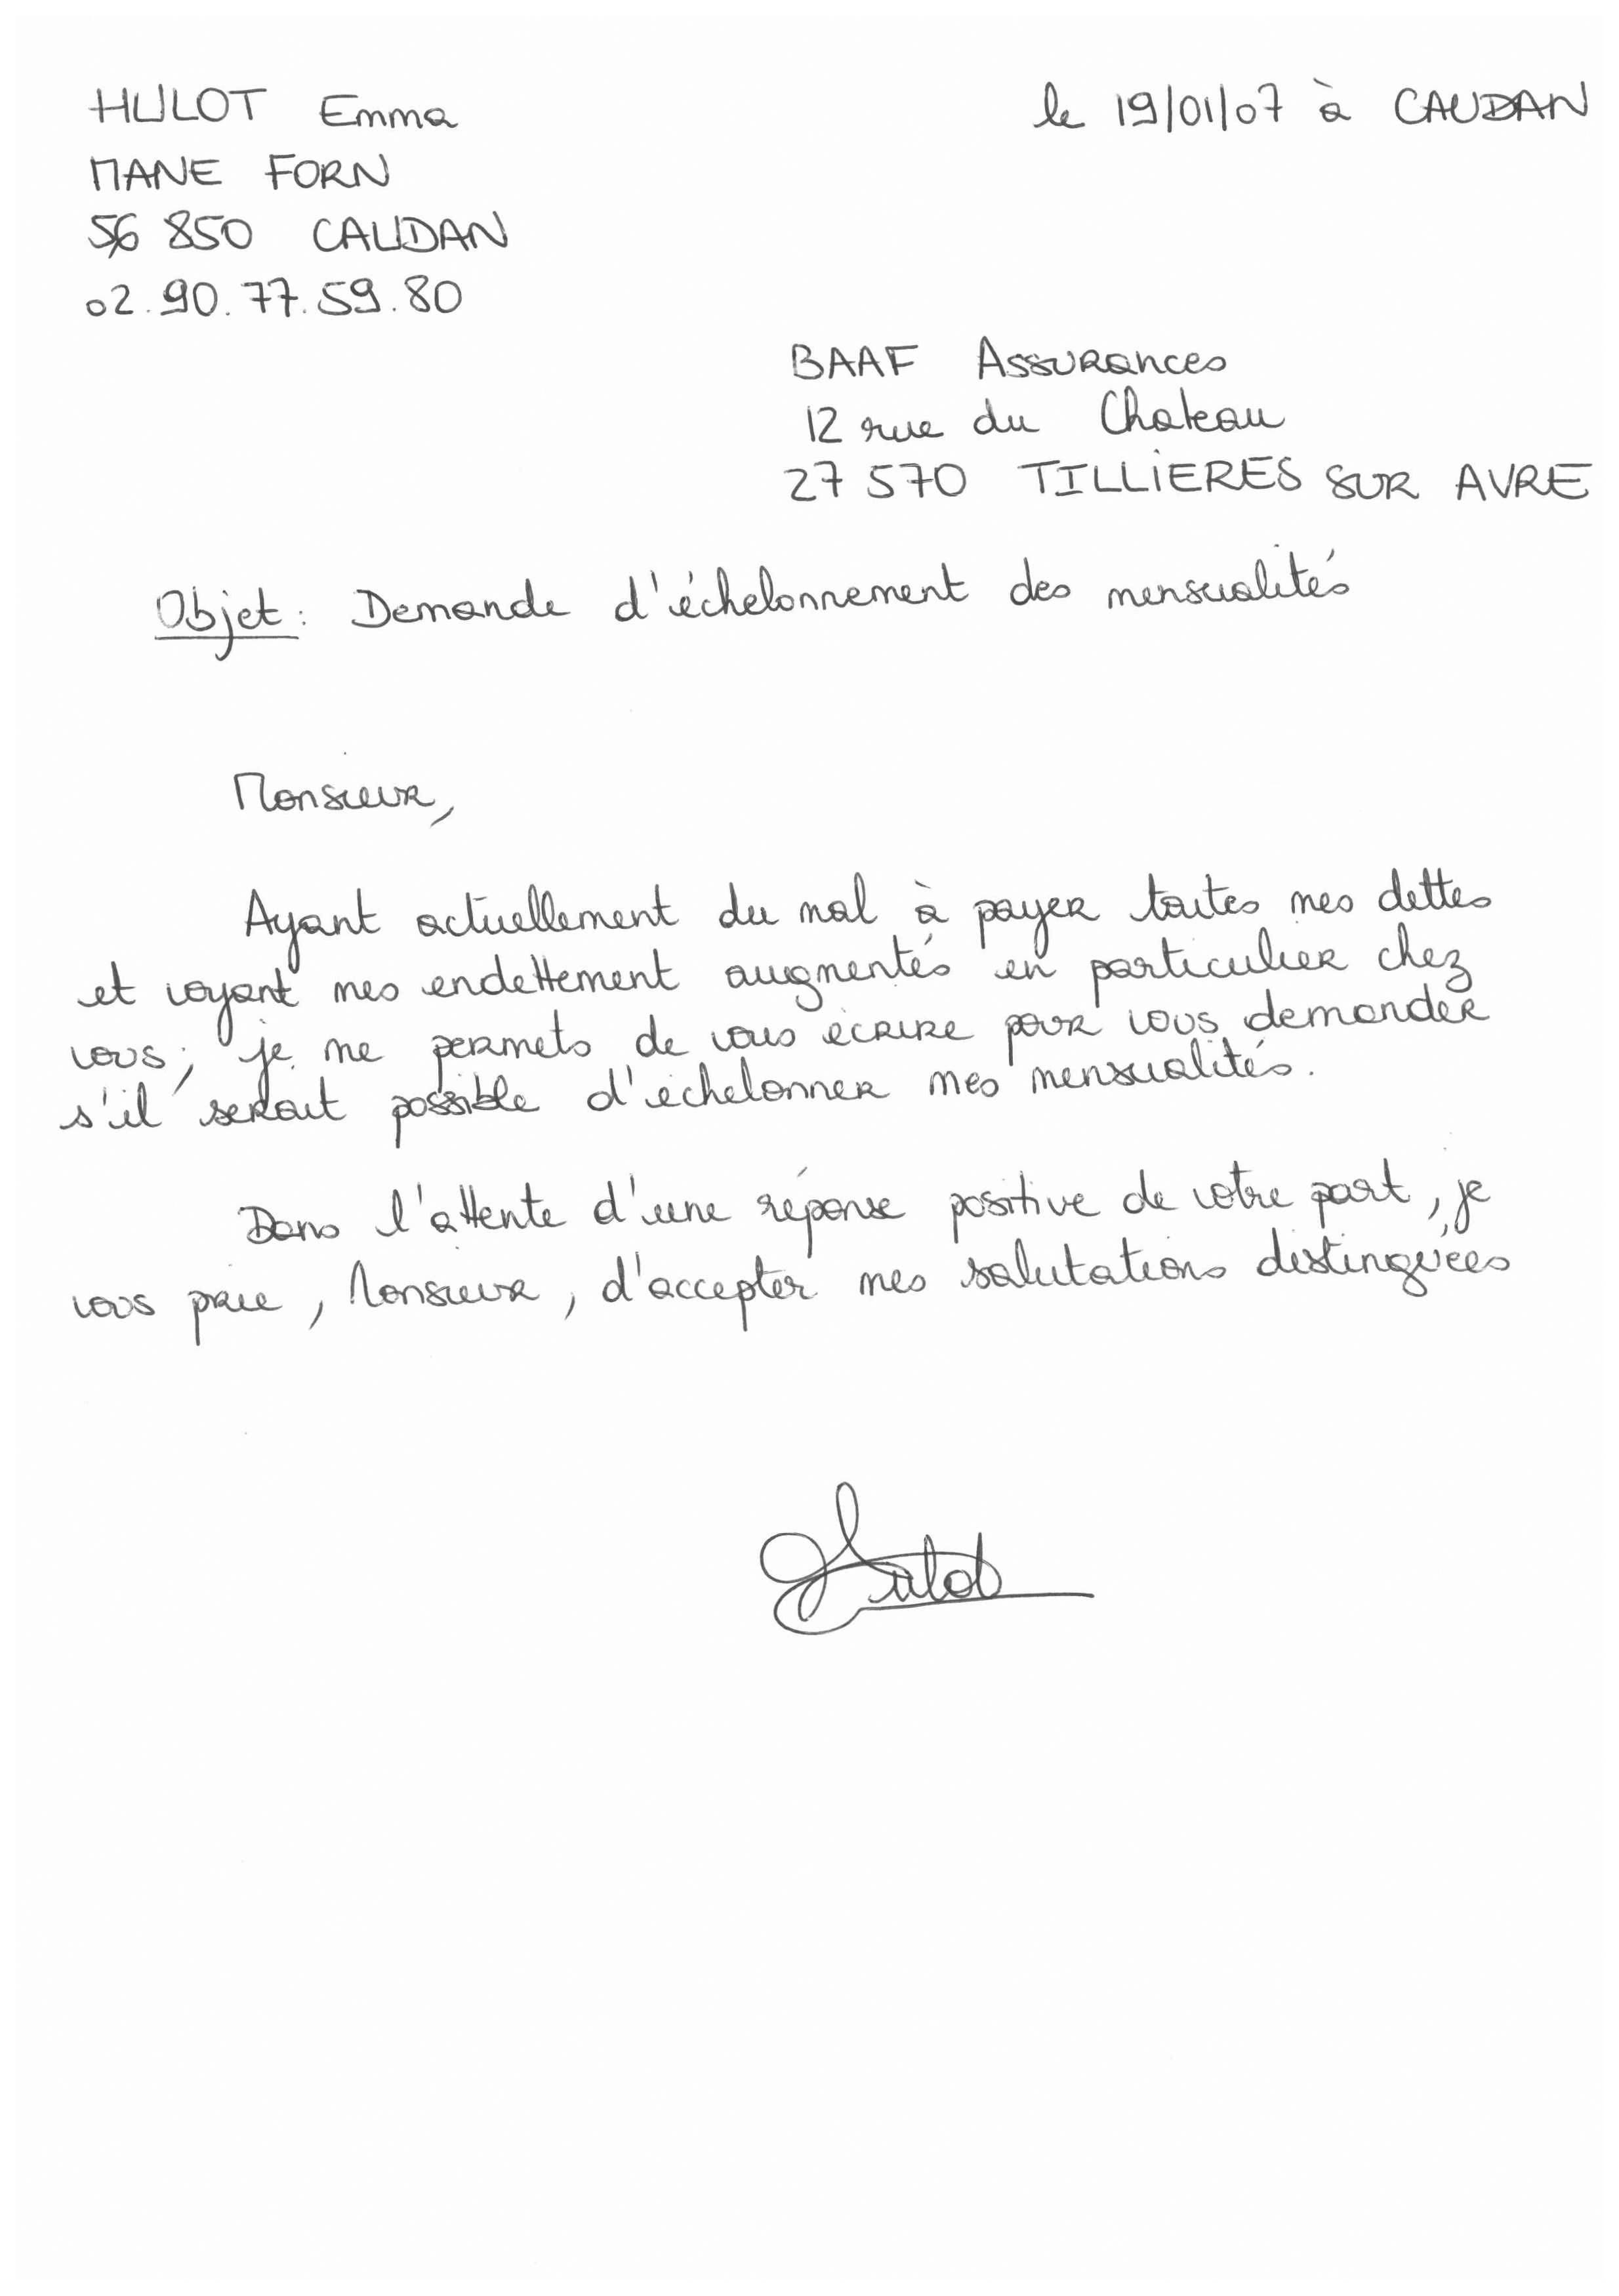 HULOT Emma
le 19/01/07 à CAUDAN
MANE FORN
56 850 CAUDAN
02.90.77.59.80
BAAF Assurances
12 rue du Chateau
27 570 TILLIERES SUR AVRE
Objet : Demande d'échelonnement des mensualités
Monsieur,
Ayant actuellement du mal à payer toutes mes dettes
et voyant mes endettement augmentés en particulier chez
vous, je me permets de vous écrire pour vous demander
s'il serait possible d'échelonner mes mensualités.
Dans l'attente d'une réponse positive de votre part, je
vous prie, Monsieur, d'accepter mes salutations distinguées
Hulot